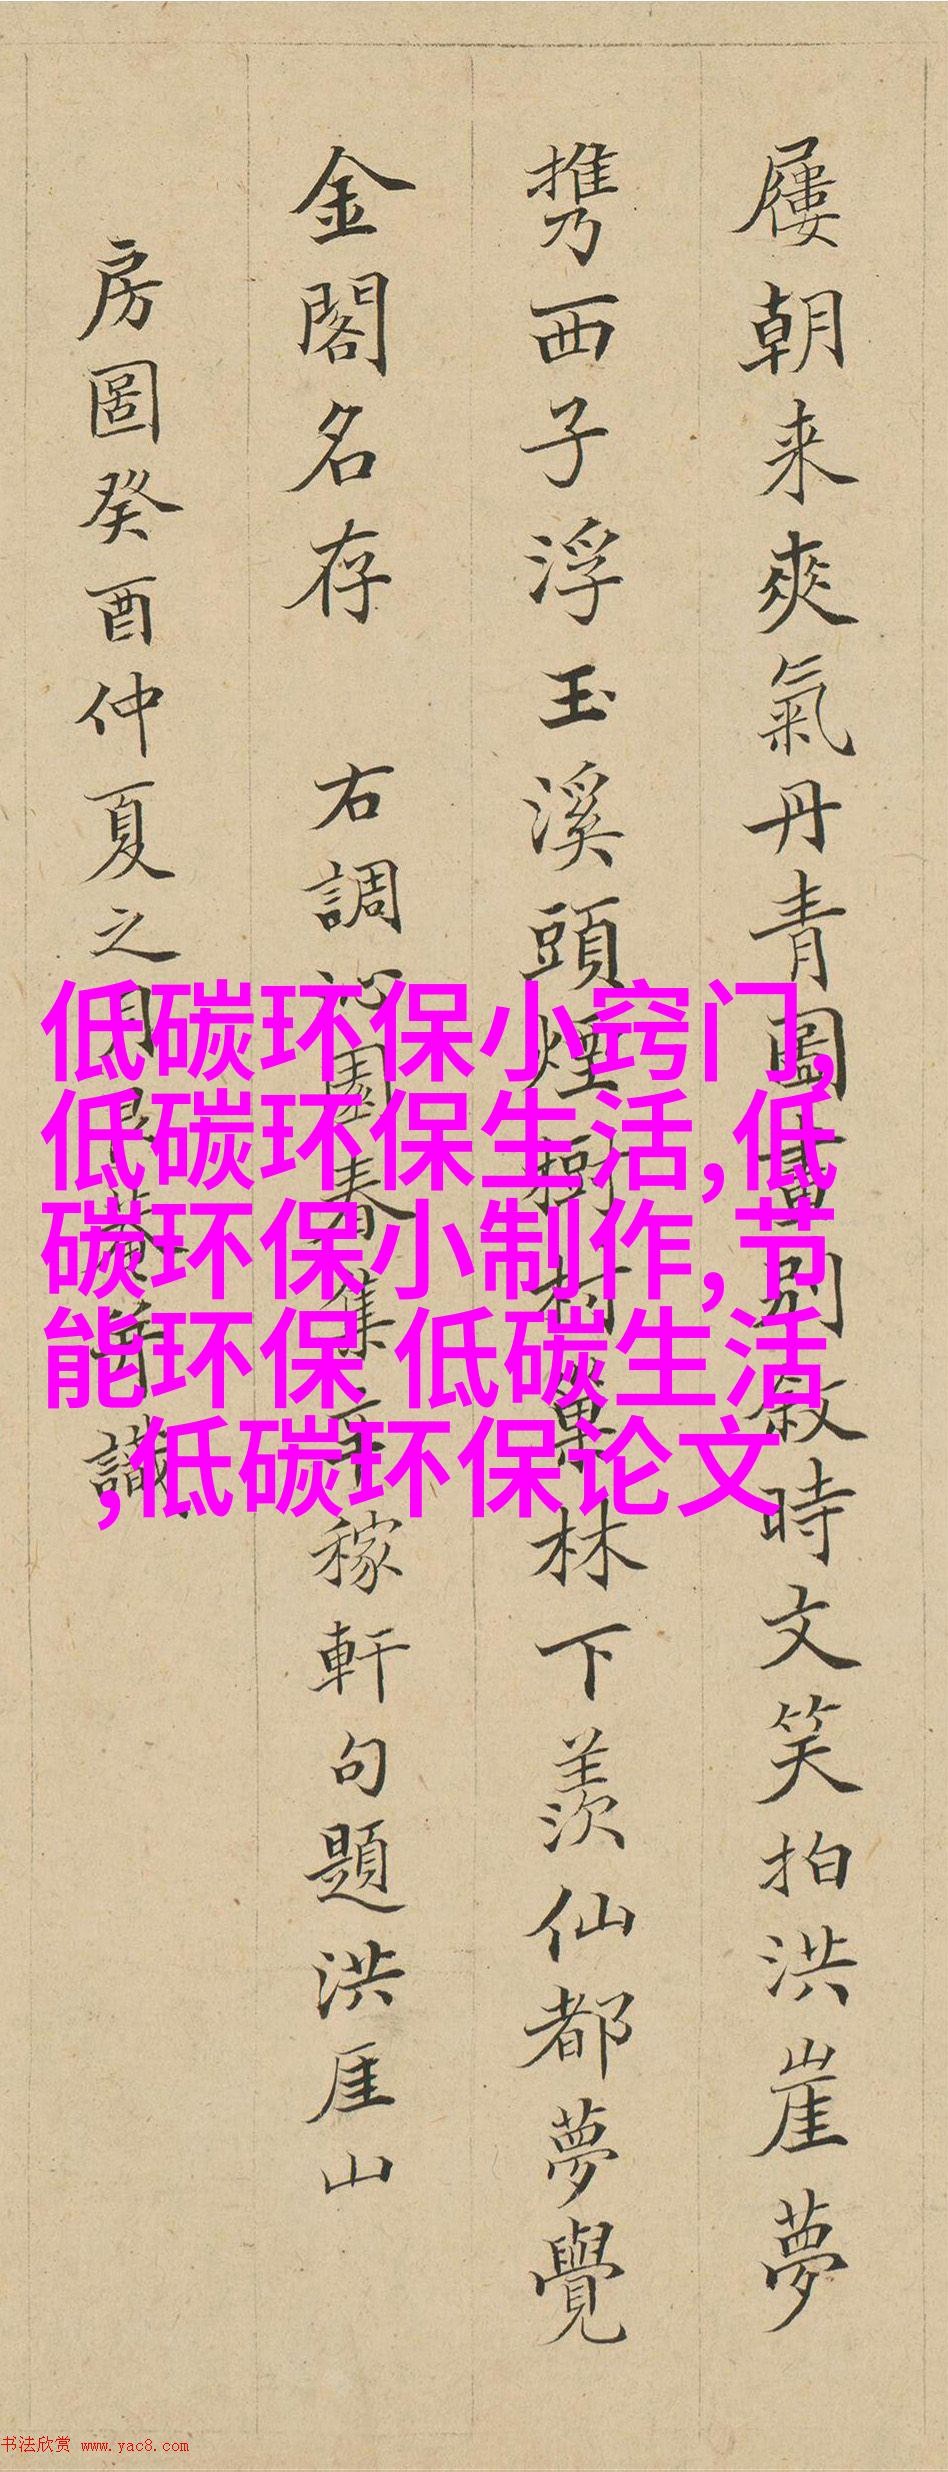 屢朝来爽氣丹青圖畫别敘時文笑拍洪崖夢
携西子浮玉溪頭煙樹村巢林下羡仙都夢覺
金閣名存 右調沁園春集辛稼軒句題洪厓山
房圖癸酉仲夏之月菴識
低碳环保小窍门,
低碳环保生活,低
碳环保小制作,节
能环保 低碳生活
,低碳环保论文
书法欣赏 www.yac8.com